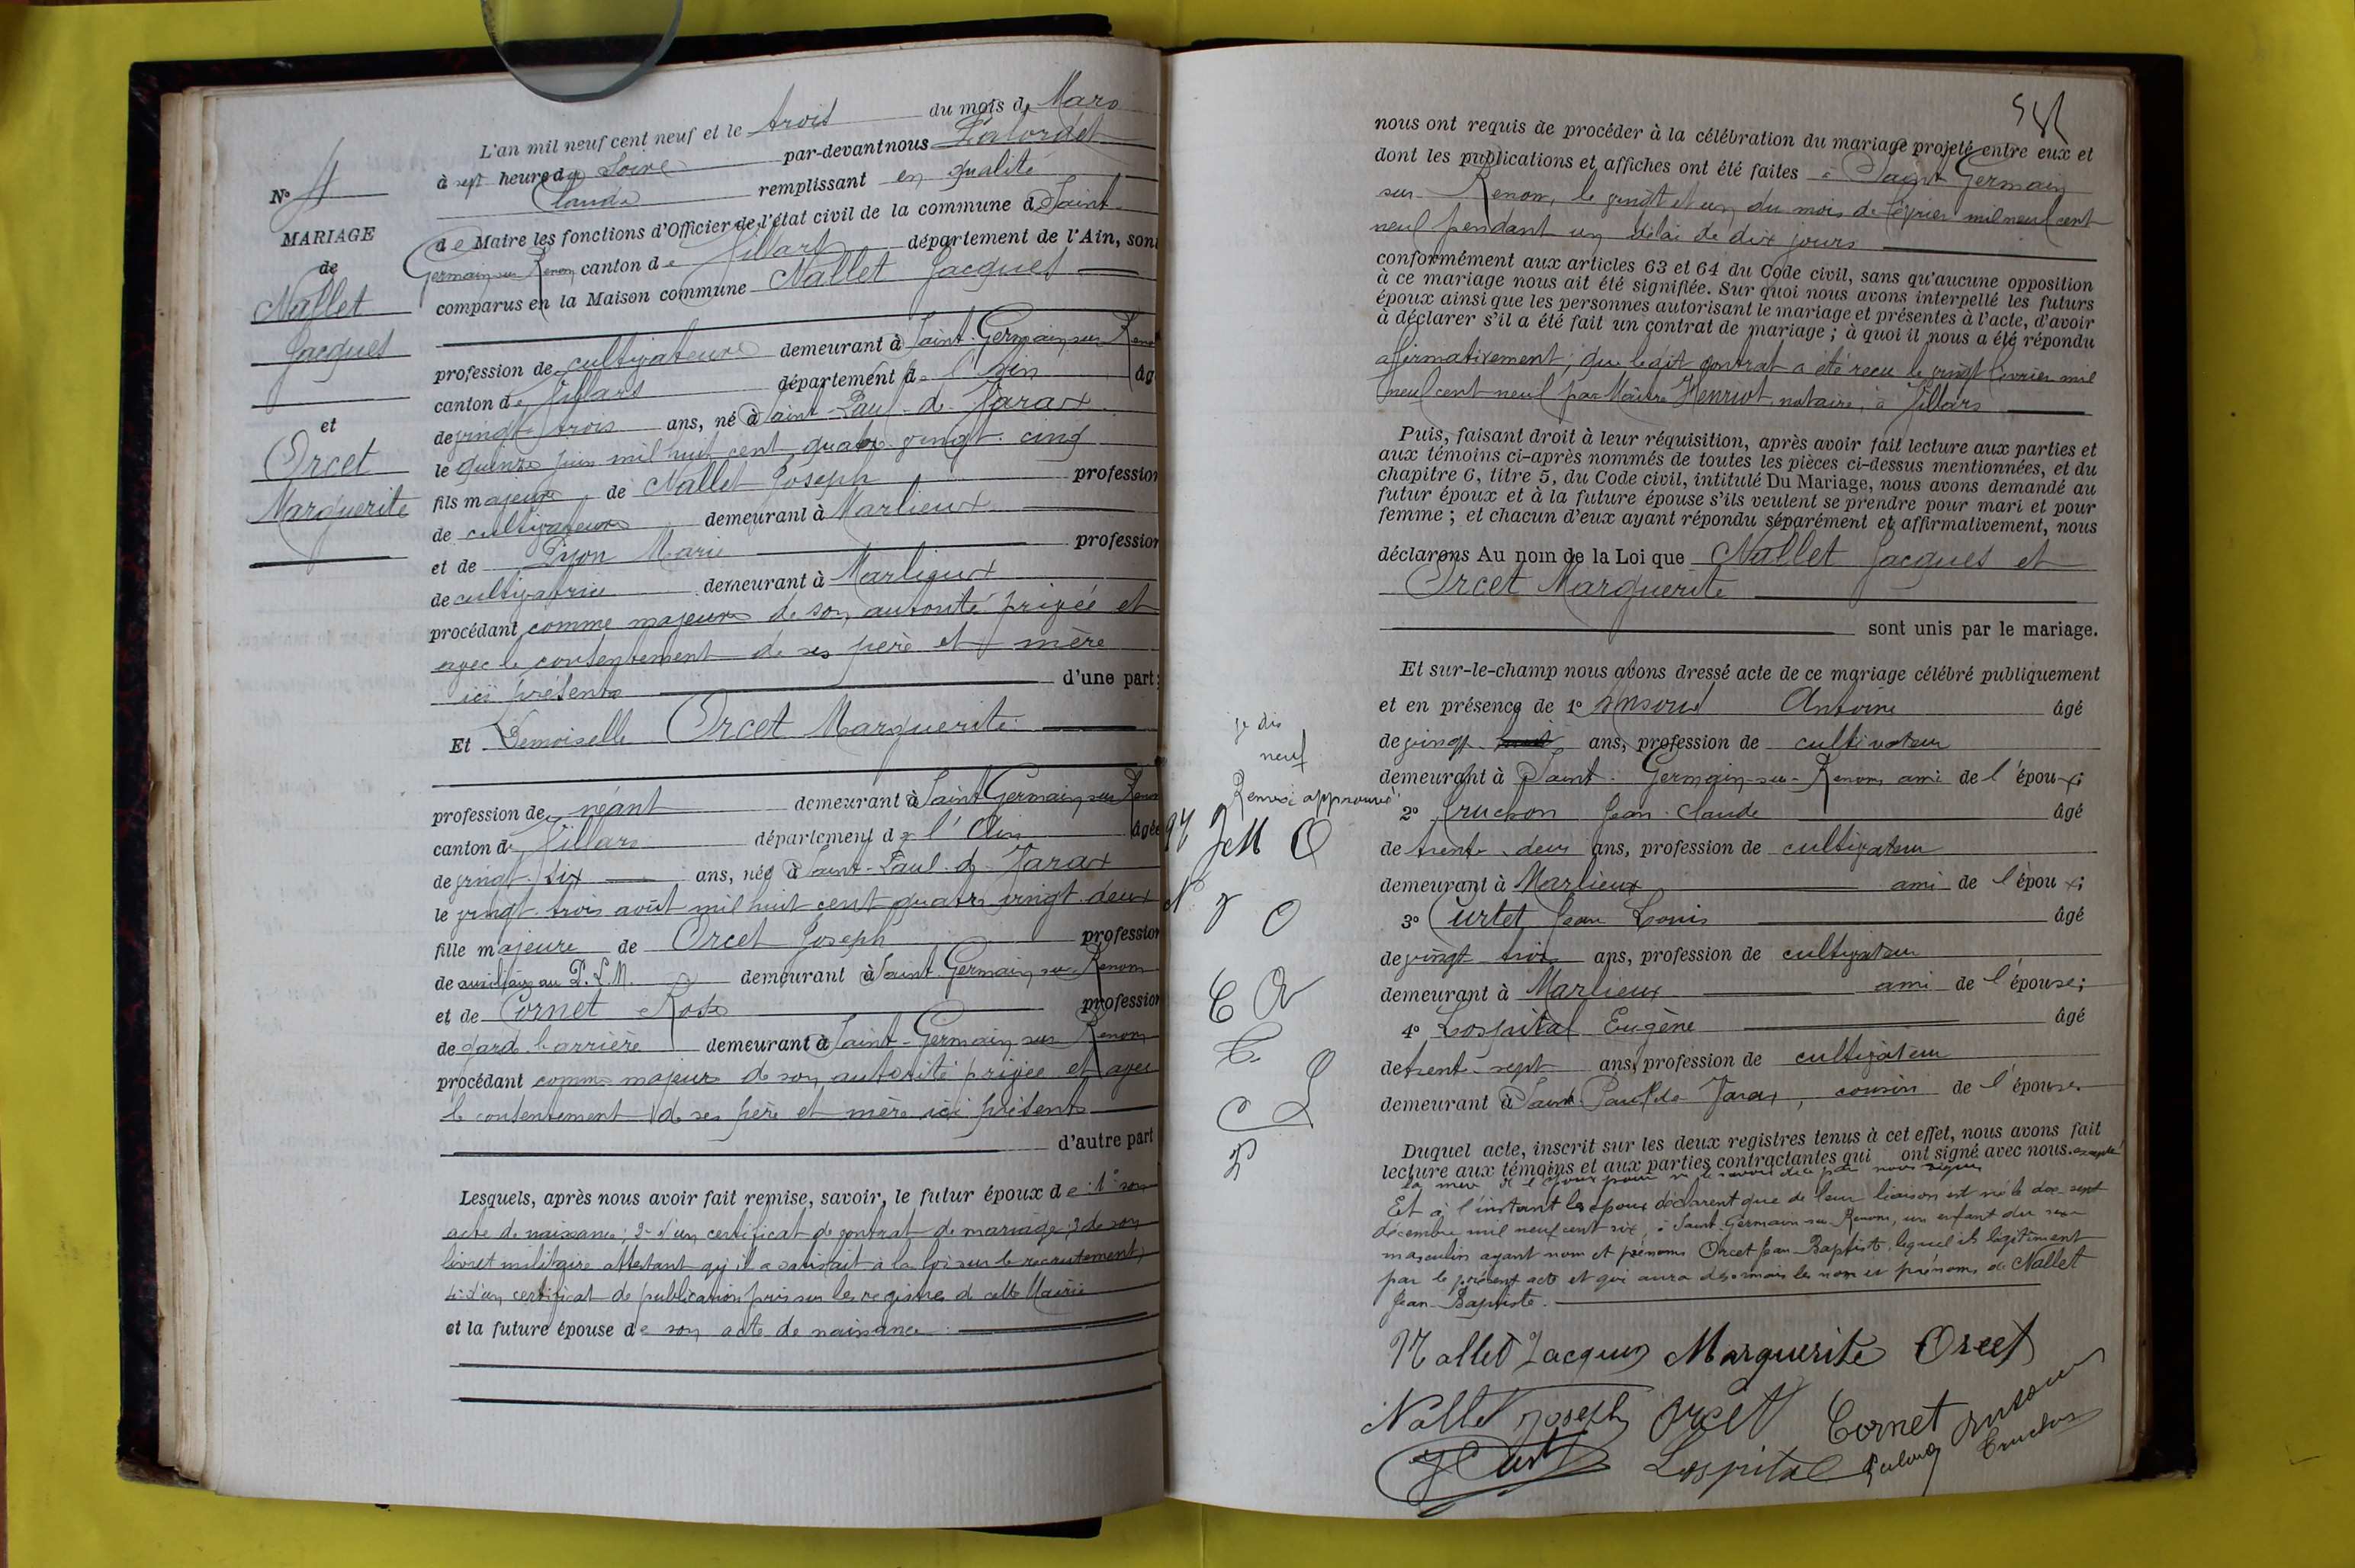 L'an mil neuf cent neuf et le trois du mois de Mars
à sept heures de Soire par-devant nous
Claude remplissant en qualité
de Maire les fonctions d'Officier de l'état civil de la commune de Saint
Germain sur Renom, canton de Villars département de l'Ain, sont
comparus en la Maison commune Nallet Jacques
profession de cultivateur demeurant à Saint-Germain sur Renom
canton de Villars département de l'Ain âgé
de vingt-trois ans, né à Saint-Paul-de-Varax
le quinze juin mil huit cent quatre-vingt-cinq
fils majeur de Nallet Joseph profession
de cultivateur demeurant à Marlieux
et de Pyon Marie profession
de cultivatrice demeurant à Marlieux
procédant comme majeur de son autorité privée et
avec le consentement de ses père et mère
ici présents d'une part;
Et Demoiselle Orcet Marguerite
profession de néant demeurant à Saint Germain sur Renom
canton de Villars département de l'Ain âgée
de vingt-six ans, née à Saint-Paul-de-Varax
le vingt-trois août mil huit cent quatre vingt-deux
fille majeure de Orcet Joseph profession
de auxiliaire au P.L.M. demeurant à Saint-Germain sur Renom
et de Cornet Rose profession
de gard. barrière demeurant à Saint-Germain sur Renom
procédant comme majeure de son autorité privée et avec
le consentement de ses père et mère ici présents
d'autre part
Lesquels, après nous avoir fait remise, savoir, le futur époux de 1° son
acte de naissance; 2° d'un certificat de contrat de mariage; 3° de son
livret militaire attestant qu'il a satisfait à la loi sur le recrutement;
4° d'un certificat de publication pris sur les registres de cette Mairie
et la future épouse de son acte de naissance.
N° 4
MARIAGE
de
Nallet
Jacques
et
Orcet
Marguerite
nous ont requis de procéder à la célébration du mariage projeté entre eux et
dont les publications et affiches ont été faites à Saint Germain
sur Renom, le vingt et un du mois de février mil neuf cent
neuf pendant un délai de dix jours
conformément aux articles 63 et 64 du Code civil, sans qu'aucune opposition
à ce mariage nous ait été signifiée. Sur quoi nous avons interpellé les futurs
époux ainsi que les personnes autorisant le mariage et présentes à l'acte, d'avoir
à déclarer s'il a été fait un contrat de mariage; à quoi il nous a été répondu
affirmativement; que ledit contrat a été reçu le vingt février mil
neuf cent neuf par Maître Henriot, notaire, à Villars
Puis, faisant droit à leur réquisition, après avoir fait lecture aux parties et
aux témoins ci-après nommés de toutes les pièces ci-dessus mentionnées, et du
chapitre 6, titre 5, du Code civil, intitulé Du Mariage, nous avons demandé au
futur époux et à la future épouse s'ils veulent se prendre pour mari et pour
femme; et chacun d'eux ayant répondu séparément et affirmativement, nous
déclarons Au nom de la Loi que Nallet Jacques et
Orcet Marguerite
sont unis par le mariage.
Et sur-le-champ nous avons dressé acte de ce mariage célébré publiquement
et en présence de 1° Antoine âgé
de vingt ans, profession de cultivateur
demeurant à Saint-Germain-sur-Renom ami de l'époux;
2° Cruchon Jean-Claude âgé
de trente-deux ans, profession de cultivateur
demeurant à Marlieux ami de l'époux;
3° Curtet Jean Louis âgé
de vingt-trois ans, profession de cultivateur
demeurant à Marlieux ami de l'épouse;
4° Lospital Eugène âgé
de trente-sept ans, profession de cultivateur
demeurant à Saint Paul de Varax, cousin de l'épouse
Duquel acte, inscrit sur les deux registres tenus à cet effet, nous avons fait
lecture aux témoins et aux parties contractantes qui ont signé avec nous. excepté
la mère de l'époux pour ne le savoir
Et à l'instant les époux déclarent que de leur liaison est né le dix-sept
décembre mil neuf cent six, à Saint Germain sur Renom, un enfant du sexe
masculin ayant nom et prénoms Orcet Jean-Baptiste, lequel ils légitiment
par le présent acte et qui aura désormais les nom et prénoms de Nallet
Jean-Baptiste.
je dis
neuf
Renvoi approuvé
Nallet Jacques Marguerite Orcet
Nallet Joseph Orcet Cornet
Lospital Cruchon